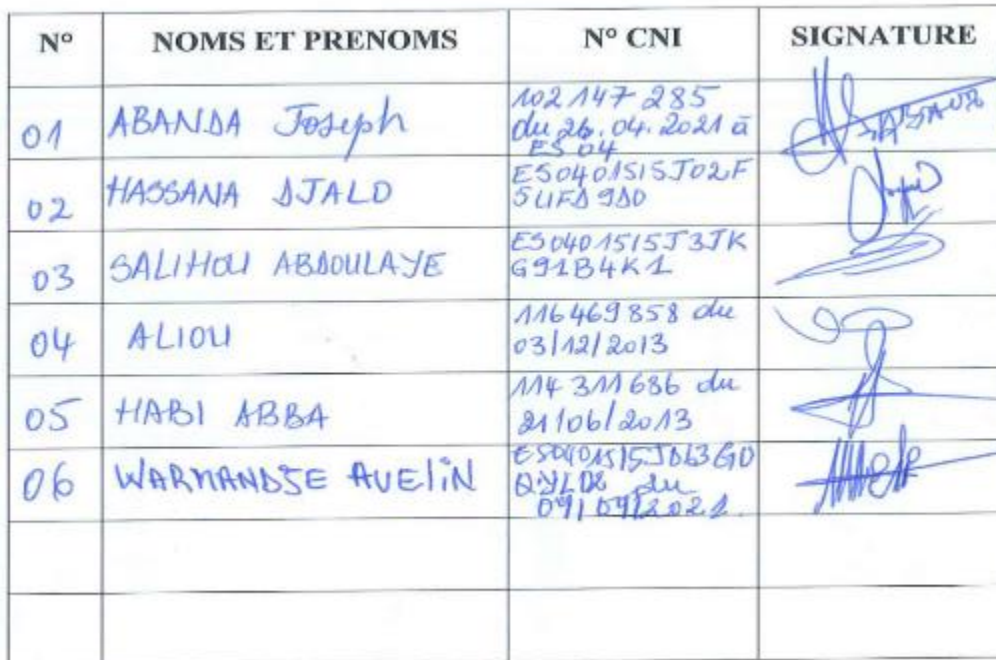 N° NOMS ET PRENOMS N° CNI SIGNATURE
01 ABANDA Joseph 102 147 285
du 26.04.2021 à
ES 04
02 HASSANA DJALO ES0401515J02F
5UFD9D0
03 SALIHOU ABDOULAYE ES0401515J3JK
G91B4K1
04 ALIOU 116469858 du
03/12/2013
05 HABI ABBA 114 311686 du
21/06/2013
06 WARMANDJE AVELIN
du